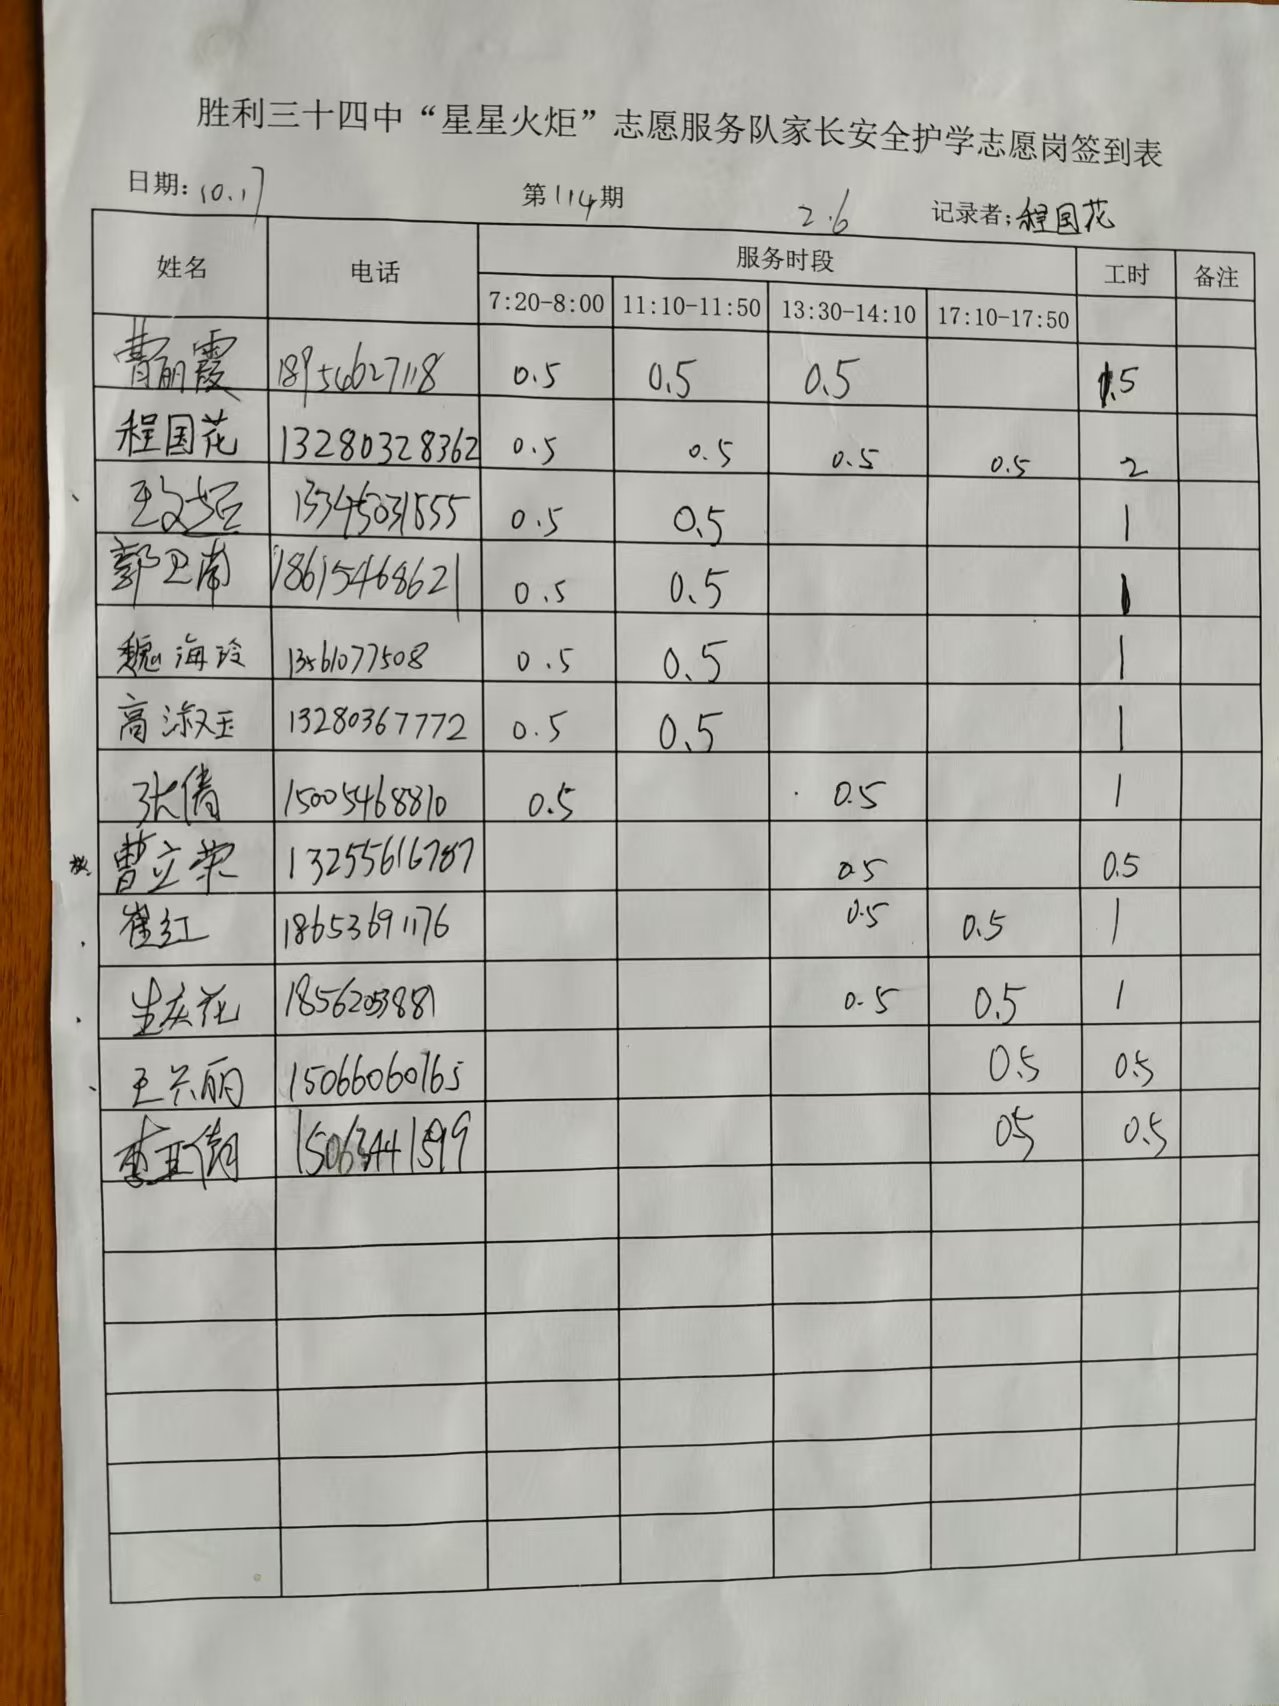 胜利三十四中“星星火炬”志愿服务队家长安全护学志愿岗签到表
日期: 10.17 第114期 2.6 记录者: 程国花
姓名 电话 服务时段 工时 备注
7:20-8:00 11:10-11:50 13:30-14:10 17:10-17:50
曹丽霞 18954627118 0.5 0.5 0.5 1.5
程国花 13280328362 0.5 0.5 0.5 0.5 2
0.5 0.5 1
郭卫南 18615468621 0.5 0.5 1
魏海玲 13561077508 0.5 0.5 1
高淑玉 13280367772 0.5 0.5 1
张倩 15005468810 0.5 0.5 1
曹立荣 13255616787 0.5 0.5
崔红 18653691176 0.5 0.5 1
生庆花 0.5 0.5 1
王兴丽 15066060765 0.5 0.5
李亚倩 05 0.5